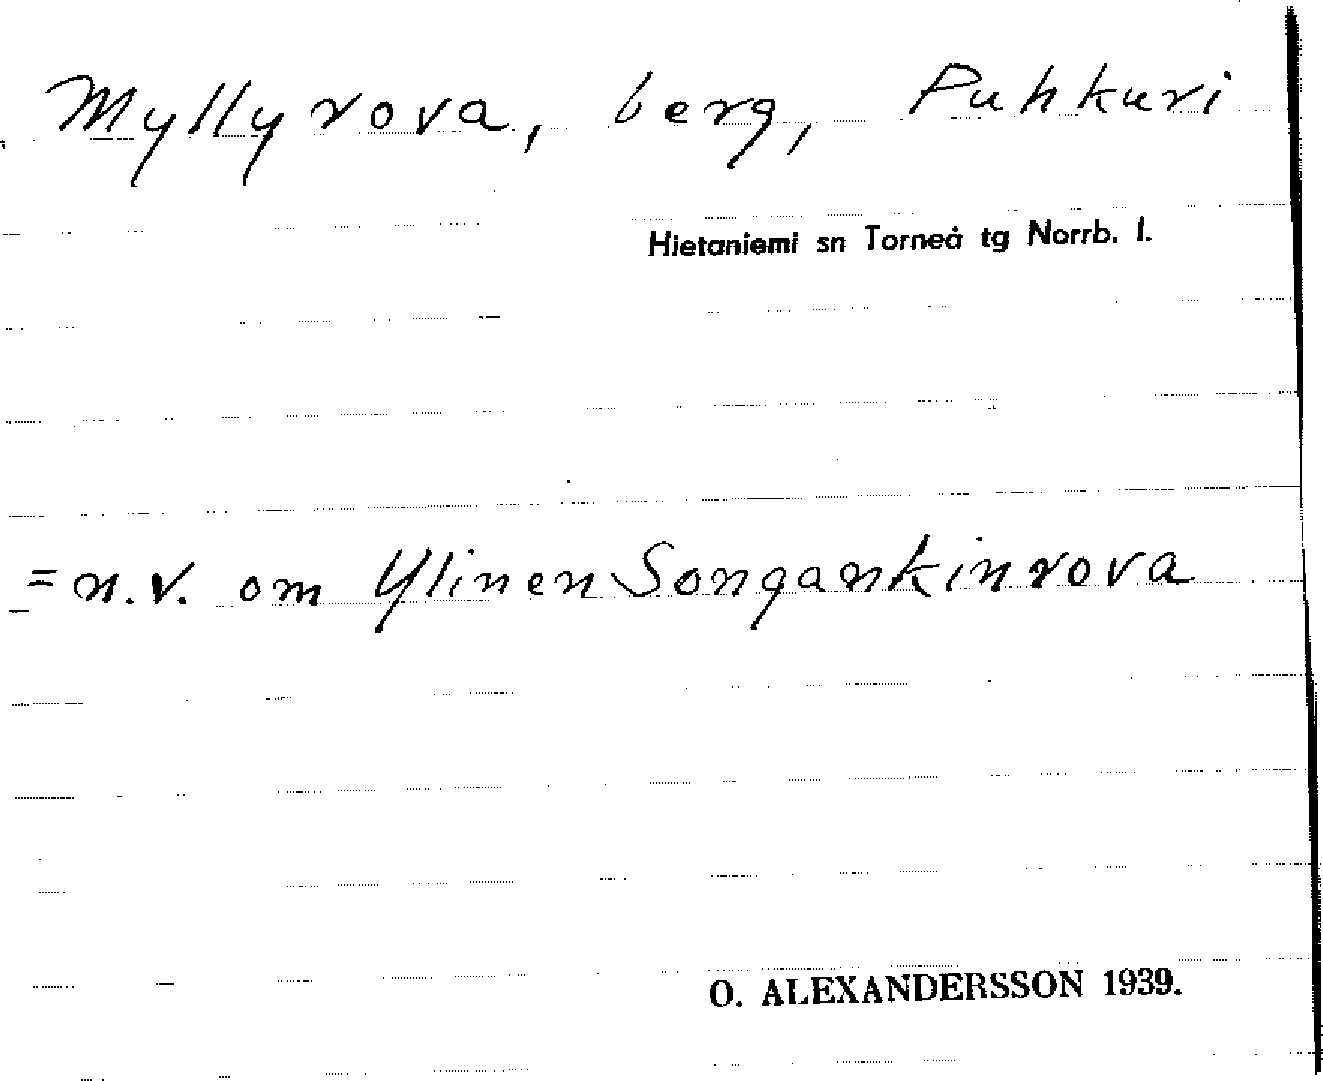 Myllyrova, berg, Puhkuri
Hietaniemi sn Torneå tg Norrb. l.
= n.v. om Ylinen Songankinrova
O. ALEXANDERSSON 1939.